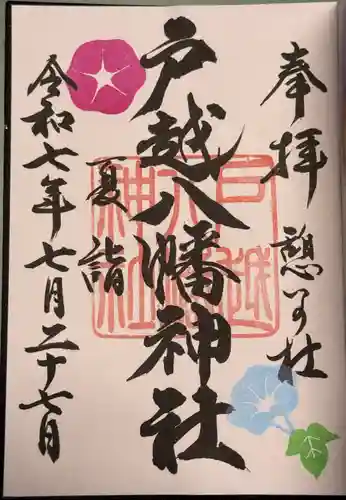 奉拝
憩ゐ社
戸越八幡神社
夏詣
令和七年七月二十七日
戸越
八幡
神社